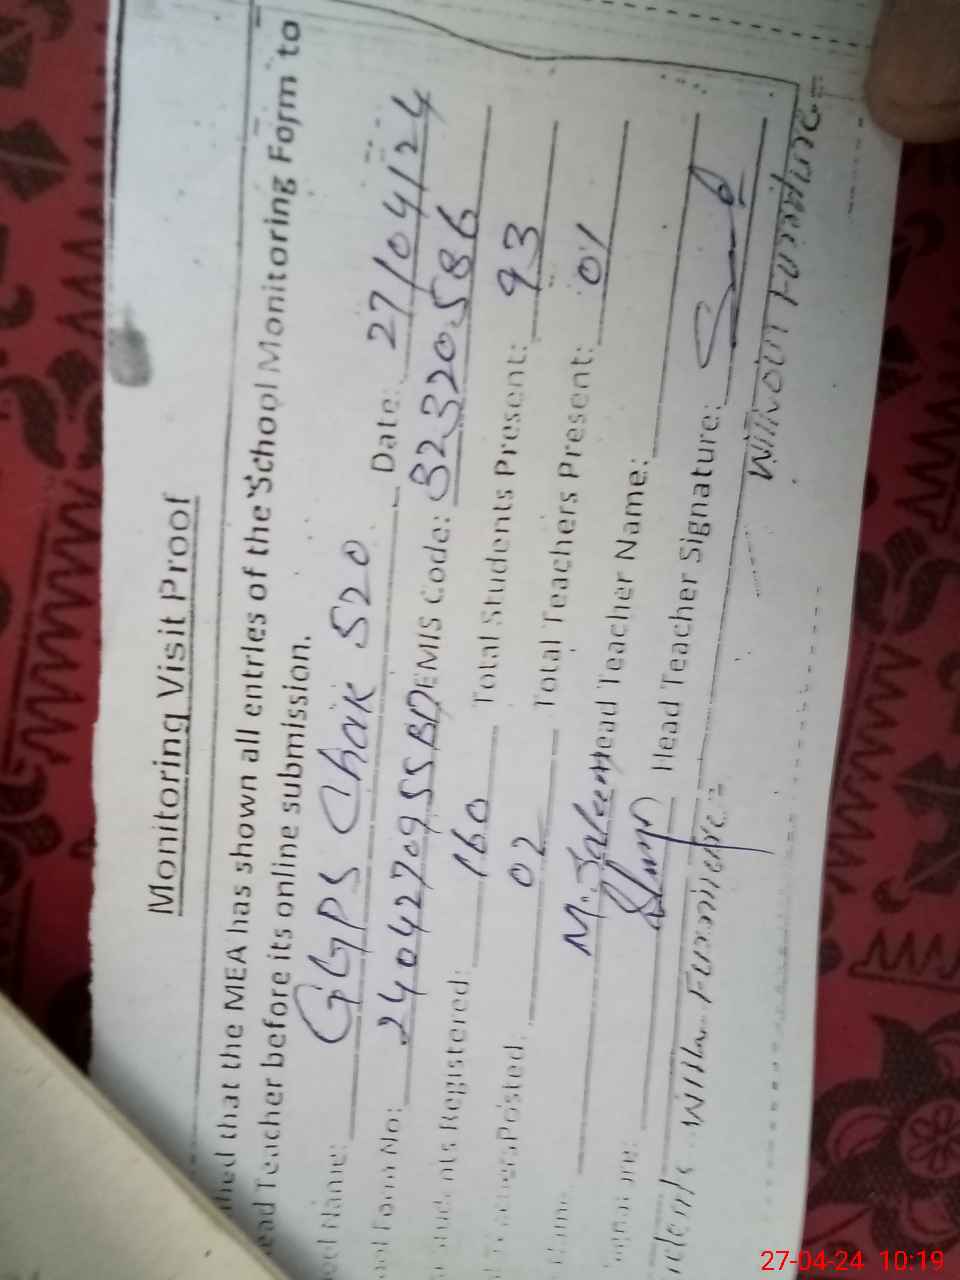 Monitoring Visit Proof
that the MEA has shown all entries of the School Monitoring Form to
ead Teacher before its online submission.
Name: GGPS Chak 520 Date: 27/04/24
Form No: 240427095SBD EMIS Code: 32320586
Students Registered: 160 Total Students Present: 93
Posted: 02 Total Teachers Present: 01
M. Saleem Head Teacher Name:
Head Teacher Signature:
With Furniture: Without Furniture
27-04-24 10:19